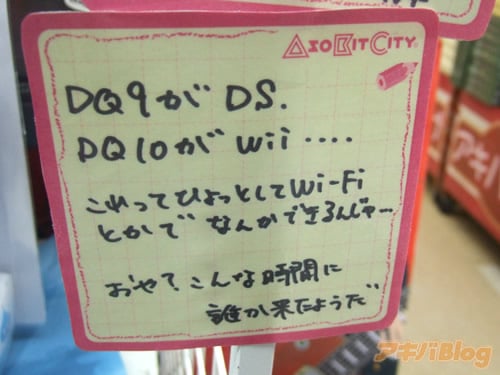 AsoBitCity
DQ9が DS.
DQ10が Wii ‥‥
これってひょっとして Wi-Fi
とかで なんかできるんじゃ…
おや?こんな時間に
誰か来たようだ
アキバBlog